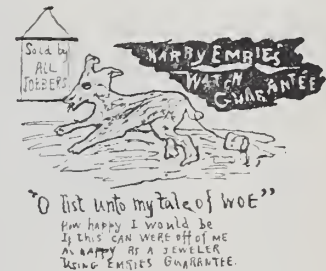 Sold by
ALL
JOBBERS
HARRY EMBIES
WATCH
GUARANTEE
"O list unto my tale of WOE"
How happy I would be
If this CAN WERE off of ME
As happy AS A JEWELER
USING EMBIES GUARANTEE.